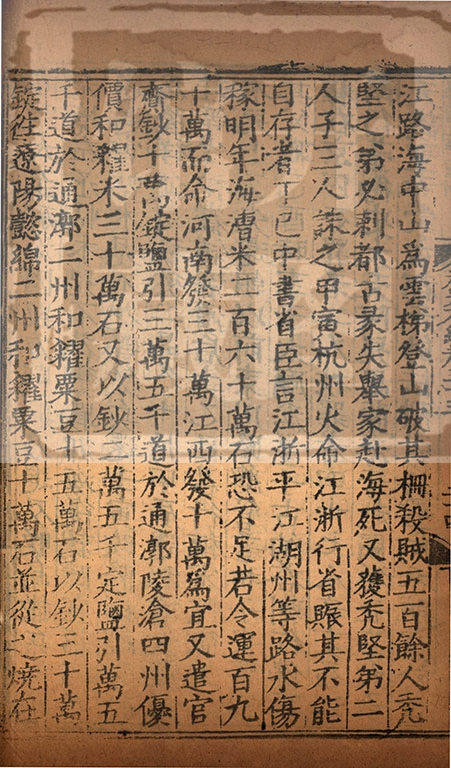 江路海中山為雲梯登山破其柵殺賊五百餘人禿
堅之弟必剌都古彖失舉家赴海死又獲禿堅弟二
人子三人誅之甲寅杭州火命江浙行省賑其不能
自存者丁巳中書省臣言江浙平江湖州等路水傷
稼明年海漕米二百六十萬石恐不足若令運百九
十萬而命河南發三十萬江西發十萬為宜又遣官
齎鈔十萬錠鹽引三萬五千道於通漷陵滄四州優
價和糴米三十萬石又以鈔二萬五千定鹽引萬五
千道於通漷二州和糴粟豆十五萬石以鈔三十萬
錠往遼陽懿綿二州和糴粟豆十萬石並從之燒在